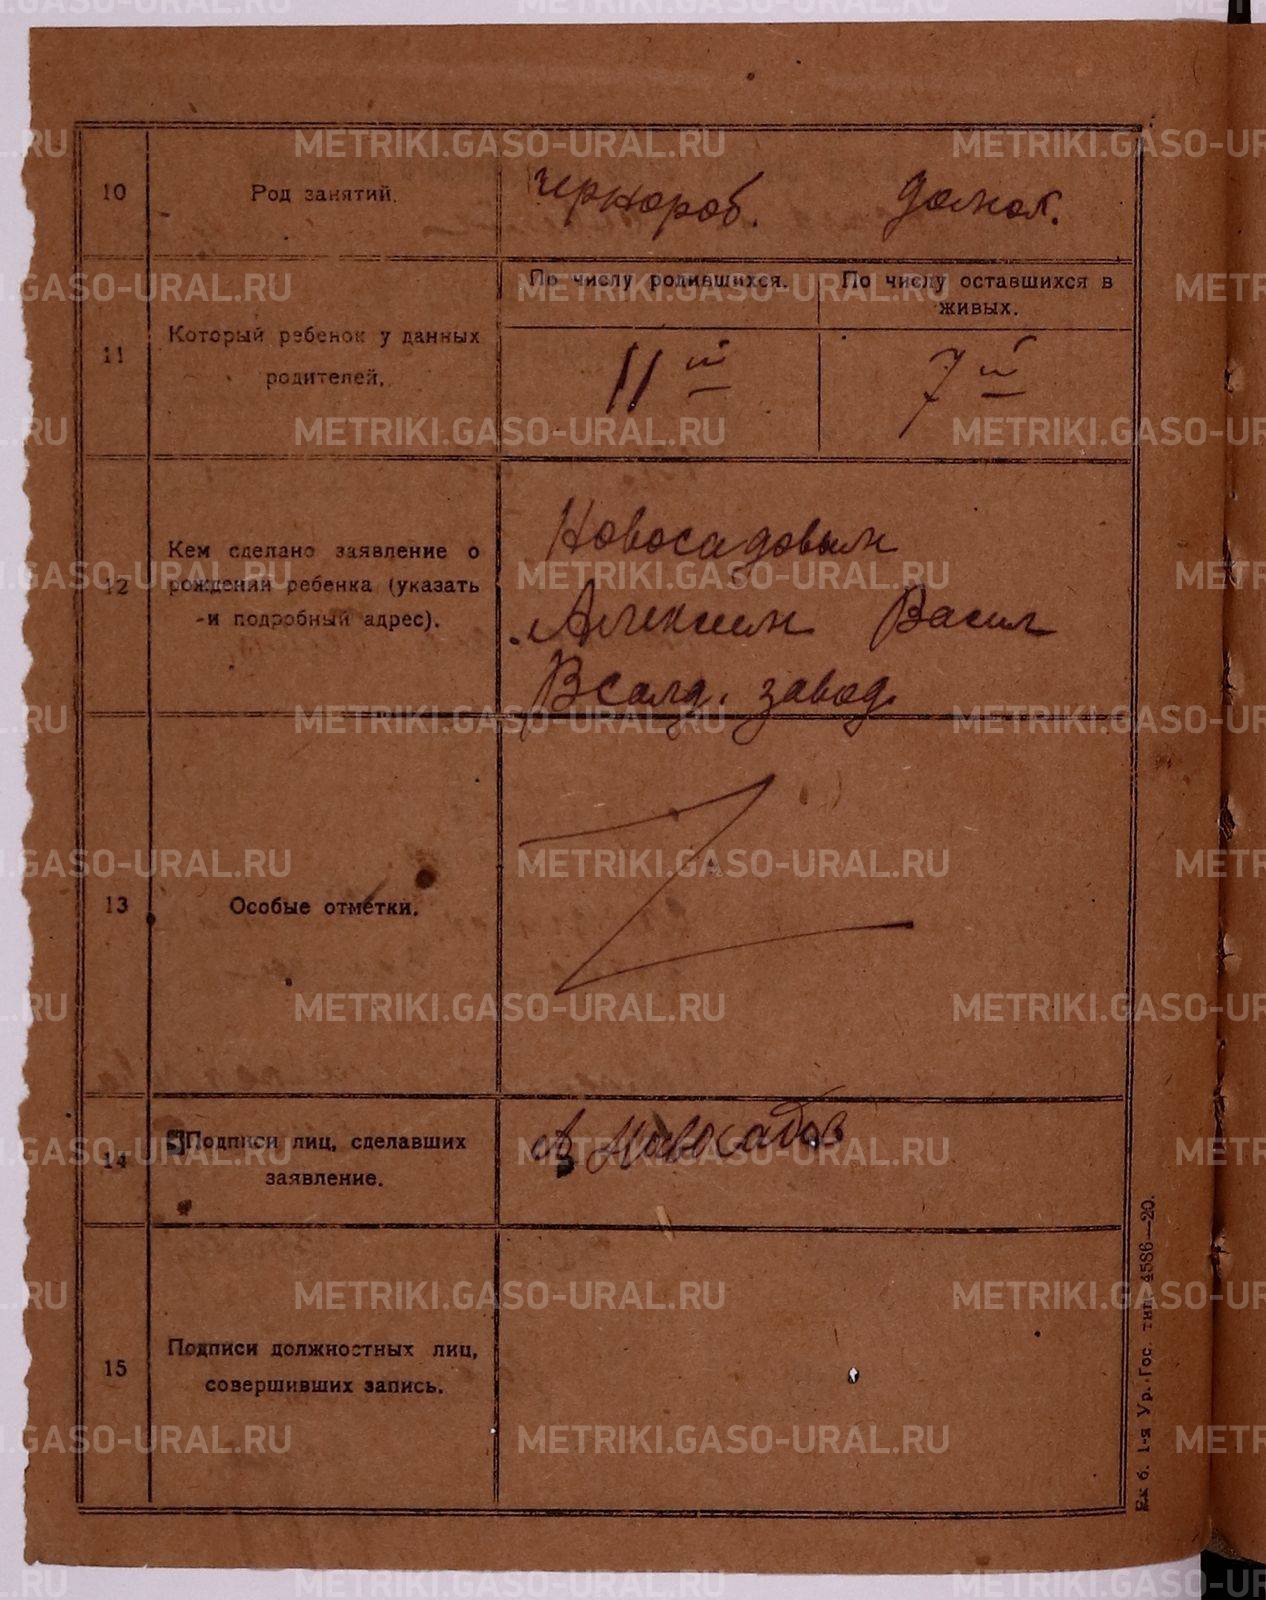 10
Род занятий.
чернораб. домох.
11
Который ребенок у данных
родителей.
По числу родившихся.
По числу оставшихся в
живых.
11й
7й
12
Кем сделано заявление о
рождении ребенка (указать
-и подробный адрес).
Новосадовым
Алексеем Васил
Всалд. завод.
13
Особые отметки.
14
Подписи лиц, сделавших
заявление.
А Новосадов
15
Подписи должностных лиц,
совершивших запись.
Ек б. 1-я Ур. Гос. тип. 4586—20.
METRIKI.GASO-URAL.RU